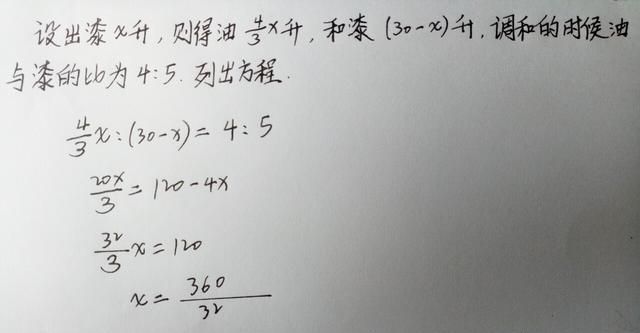 设出漆x升，则得油 4/3 x升，和漆 (30-x)升，调和的时候油
与漆的比为 4:5. 列出方程.
4/3 x : (30-x) = 4 : 5
20x/3 = 120-4x
32/3 x = 120
x = 360/32